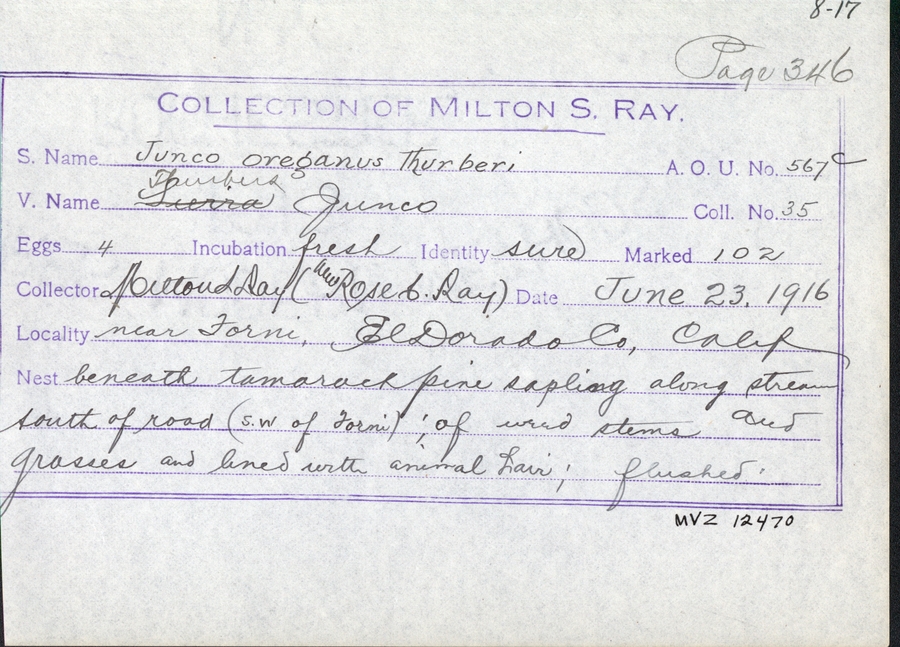 8-17
Page 346
COLLECTION OF MILTON S. RAY.
S. Name Junco oreganus Thurberi A. O. U. No. 567c
Thurbers
V. Name Sierra Junco Coll. No. 35
Eggs 4 Incubation fresh Identity sure Marked 102
Collector Milton S Ray (Rose C. Ray) Date June 23, 1916
Locality near Forni, El Dorado Co, Calif
Nest beneath tamarack pine sapling along stream
south of road (S.W of Forni); of weed stems and
grasses and lined with animal hair; flushed.
MVZ 12470